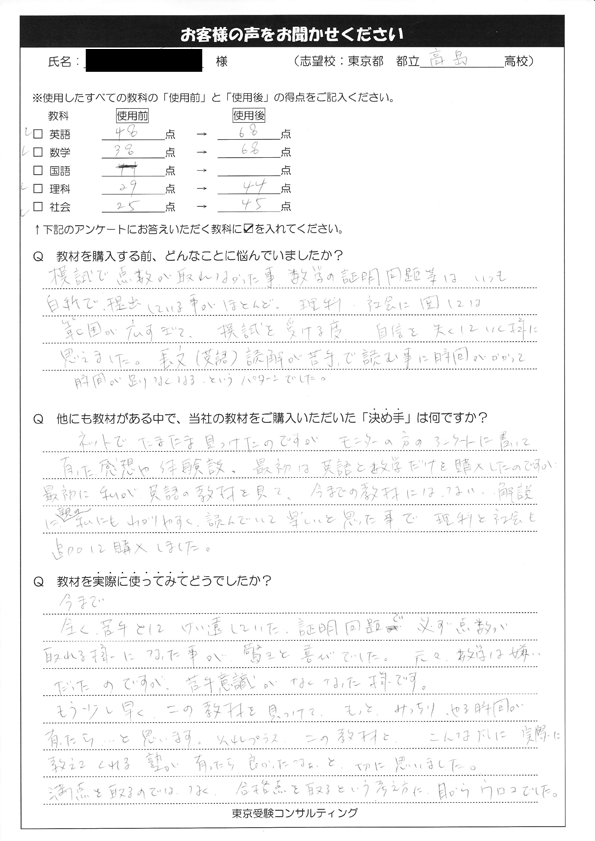 お客様の声をお聞かせください
氏名： 様 （志望校：東京都 都立 高島 高校）
※使用したすべての教科の「使用前」と「使用後」の得点をご記入ください。
教科 使用前 使用後
□ 英語 48点 → 68点
□ 数学 38点 → 68点
□ 国語 点 → 点
□ 理科 29点 → 44点
□ 社会 25点 → 45点
↑下記のアンケートにお答えいただく教科に☑を入れてください。
Q 教材を購入する前、どんなことに悩んでいましたか？
模試で点数が取れなかった事 数学の証明問題等は いつも
白紙で、提出している事がほとんど、 理科、社会に関しては
範囲が広すぎて、 模試を受ける度 自信を失くしていく様に
思えました。 長文（英語）読解が苦手で読む事に時間がかかって
時間が足りなくなる、というパターンでした。
Q 他にも教材がある中で、当社の教材をご購入いただいた「決め手」は何ですか？
ネットで たまたま見つけたのですが モニターの方のアンケートに書いて
有った感想や体験談、 最初は英語と数学だけを購入したのですが
最初に私が英語の教材を見て、今までの教材にはない、解説
に 私にもわかりやすく、読んでいて楽しいと思った事で 理科と社会も
追加して購入しました。
Q 教材を実際に使ってみてどうでしたか？
今まで
全く、苦手としてけい遠していた、証明問題で 必ず点数が
取れる様になった事が 驚きと喜びでした。 元々、数学は嫌い
だったのですが、苦手意識がなくなった様です。
もう少し早く、この教材を見つけて、もっと、みっちり、やる時間が
有ったら…と思います。 この教材と、 こんなふうに 実際に
教えてくれる塾が有ったら良かったなぁ、と 思いました。
満点を取るのではなく、合格点を取るという考え方に、目からウロコでした。
東京受験コンサルティング